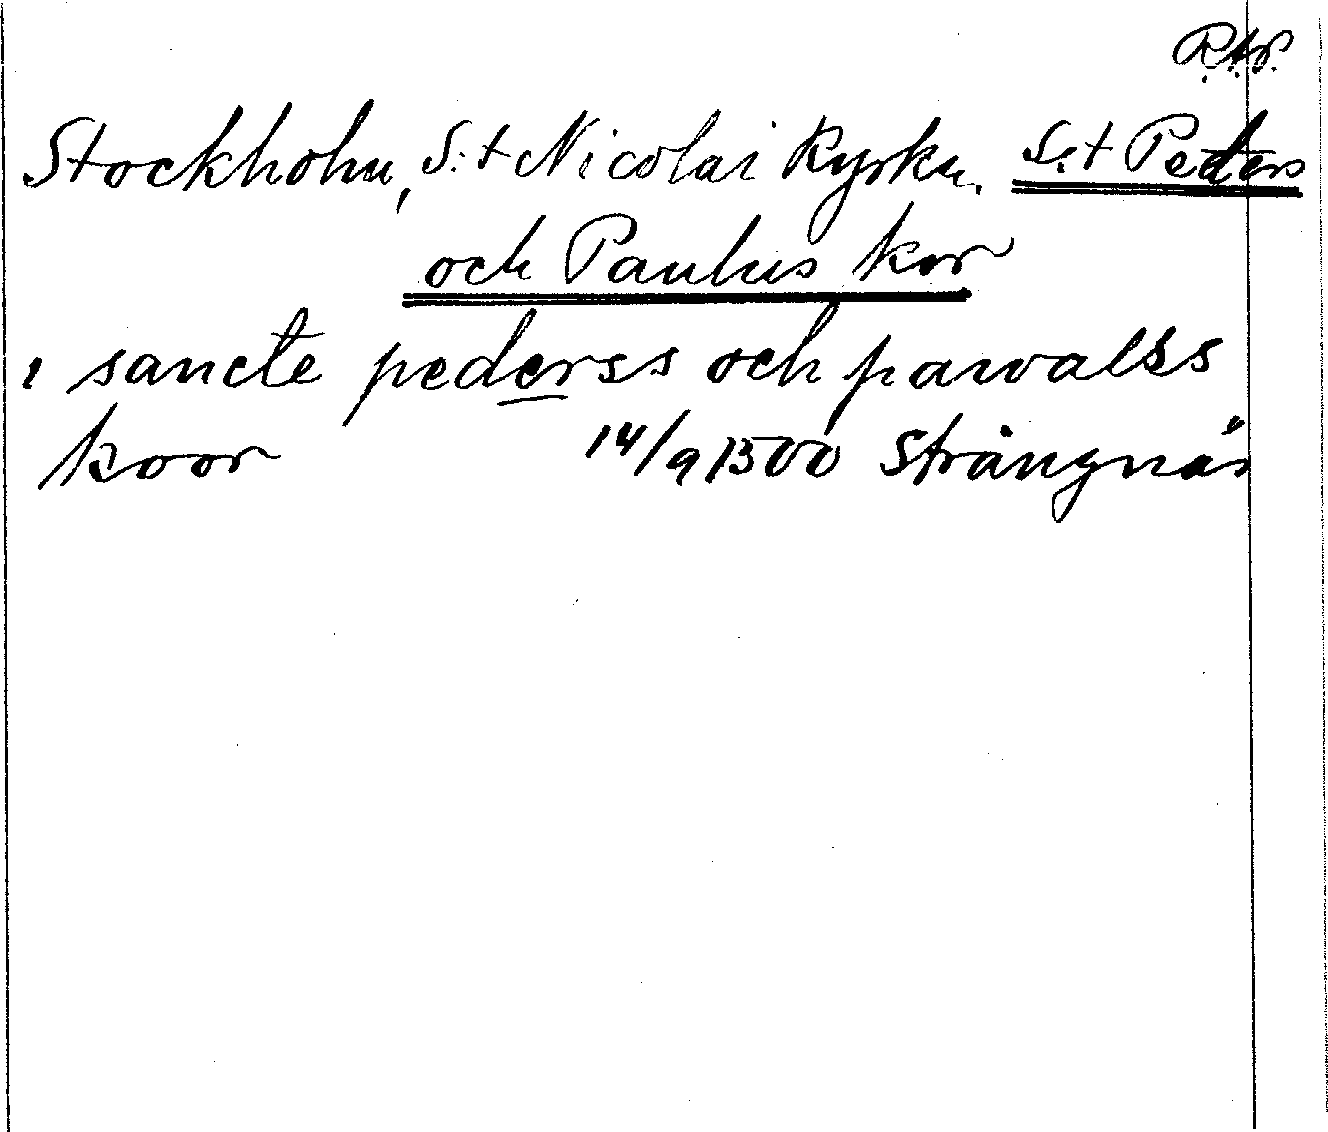 R.A.P.
Stockholm, S:t Nicolai kyrka. S:t Peders
och Paulus kor
i sancte pederss och pawalss
koor 14/9 1500 Strängnäs